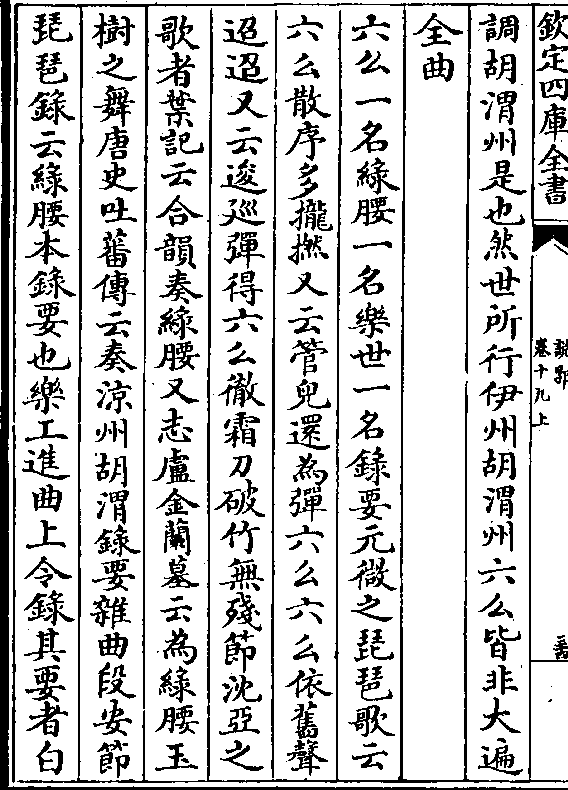 欽定四庫全書
說郛
卷十九上
調胡渭州是也然世所行伊州胡渭州六么皆非大遍
全曲
六么一名綠腰一名樂世一名錄要元微之琵琶歌云
六么散序多攏撚又云管兒還為彈六么六么依舊聲
迢迢又云逡廵彈得六么徹霜刀破竹無殘節沈亞之
歌者葉記云合韻奏綠腰又志盧金蘭墓云為綠腰玉
樹之舞唐史吐蕃傳云奏涼州胡渭錄要雜曲段安節
琵琶錄云綠腰本錄要也樂工進曲上令錄其要者白